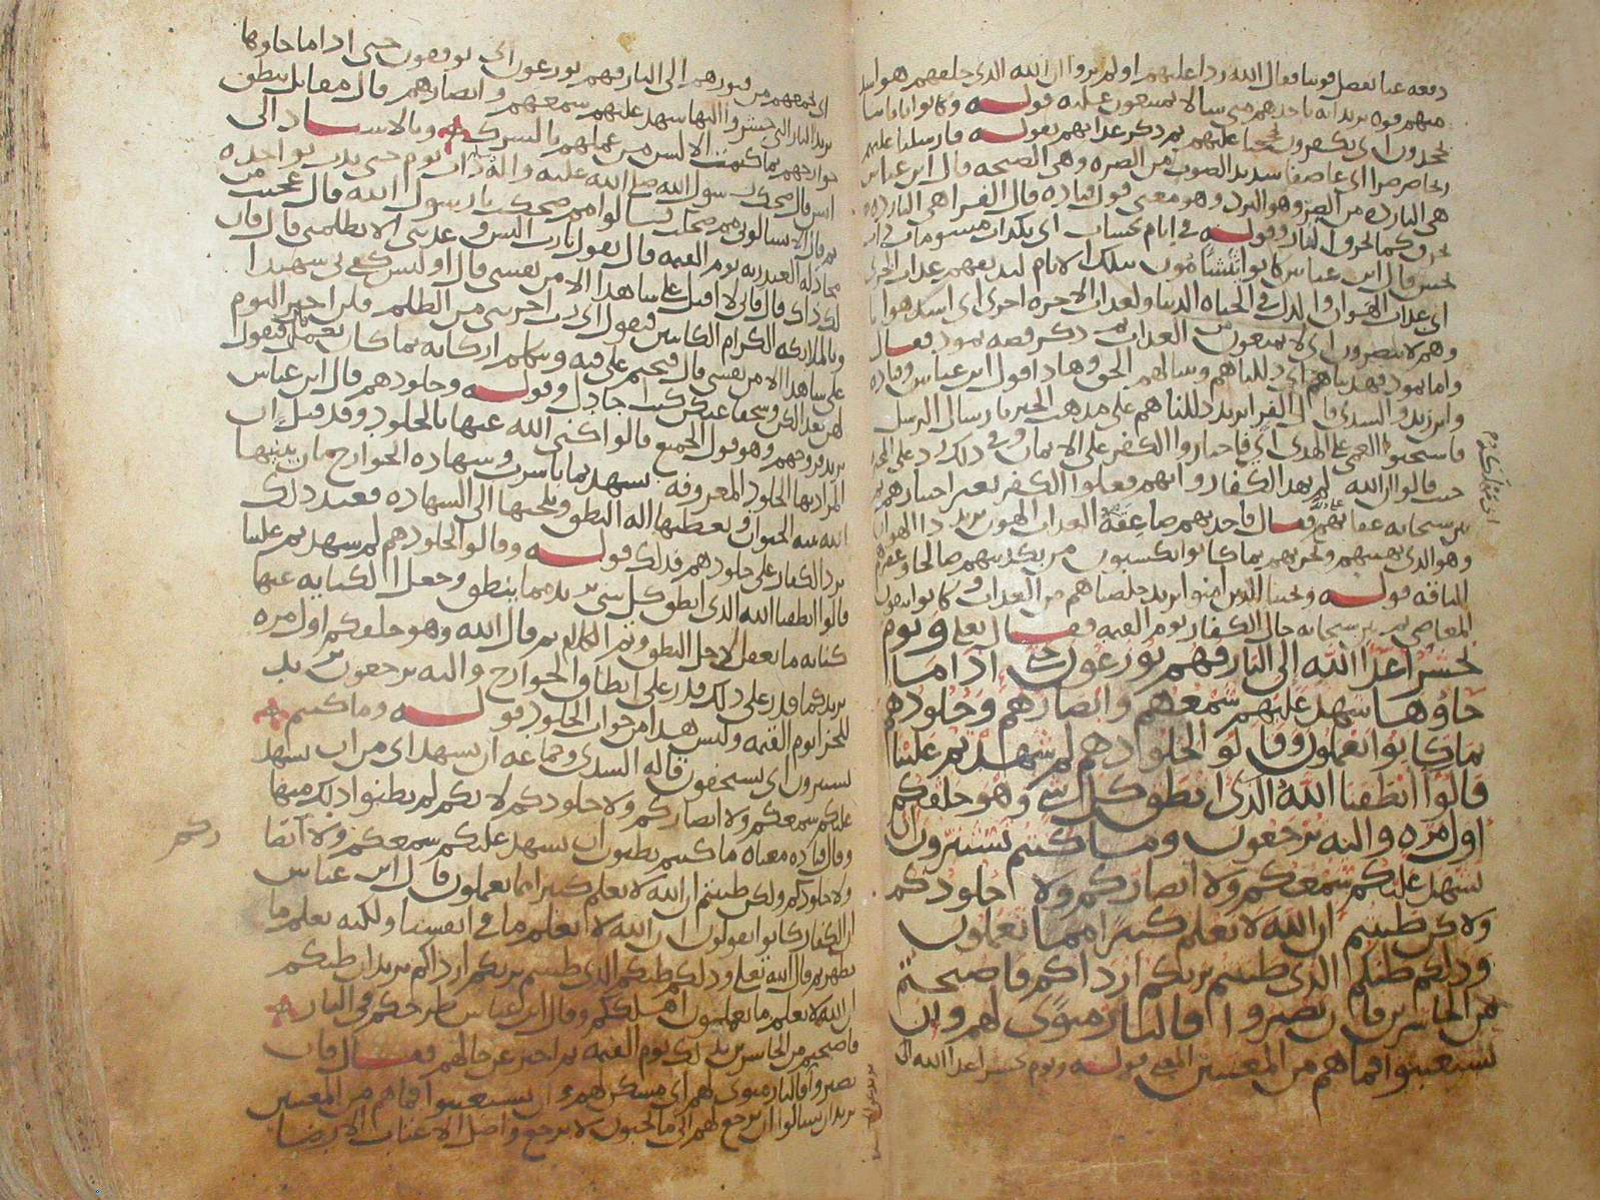 دفعه عنا بفضل قوتنا فقال الله ردا عليهم اولم يروا ان الله الذي خلقهم هو اشد
منهم قوه يريد انه ياخذهم متى شا لا يمتنعون عليه قوله وكانوا باياتنا
يجحدون اي يكفرون بمحمد ثم ذكر عذابهم بقوله فارسلنا عليهم
ريحا صرصرا اي عاصفا شديد الصوت من الصره وهي الصيحه قال ابن عباس
هي البارده من الصر وهو البرد وهو معنى قول قتاده قال الفرا هي البارده
تحرق كما تحرق النار وقوله في ايام نحسات اي نكدات مشومات
نحس قال ابن عباس كانوا يتشامون بتلك الايام لنذيقهم عذاب الخزي
اي عذاب الهوان والذل في الحياه الدنيا ولعذاب الاخره اخزى اي اشد هوانا
وهم لا ينصرون اي لا يمنعون من العذاب ثم ذكر قصه ثمود فقال
واما ثمود فهديناهم اي دللناهم وبينا لهم الحق وهاذا قول ابن عباس وقتاده
وابن زيد والسدي قال الفرا يريد دللناهم على مذهب الخير بارسال الرسل
فاستحبوا العمى على الهدى اي فاختاروا الكفر على الايمان وفي ذلك رد على
حيث قالوا ان الله لم يهد الكفار وانهم فعلوا الكفر بغير اختيارهم ثم
بين سبحانه عقابهم فقال فاخذتهم صاعقة العذاب الهون يريد ذا الهوان
وهو الذي يهينهم ويخزيهم بما كانوا يكسبون من تكذيبهم صالحا وعقرهم
الناقه قوله ونجينا الذين امنوا يريد خلصناهم من العذاب وكانوا يتقون
المعاصي ثم بين سبحانه حال الكفار يوم القيمه فقال تعلى ويوم
يحشر اعدا الله الى النار فهم يوزعون حتى اذا ما
جاوها شهد عليهم سمعهم وابصارهم وجلودهم
بما كانوا يعملون وقالوا لجلودهم لم شهدتم علينا
قالوا انطقنا الله الذي انطق كل شي وهو خلقكم
اول مره واليه ترجعون وما كنتم تستترون ان
يشهد عليكم سمعكم ولا ابصاركم ولا جلودكم
ولاكن ظننتم ان الله لا يعلم كثيرا مما تعملون
وذلكم ظنكم الذي ظننتم بربكم ارداكم فاصبحتم
من الخاسرين فان يصبروا فالنار مثوى لهم وان
يستعتبوا فما هم من المعتبين المعنى قوله ويوم يحشر اعدا الله الى
اي يجمعهم من قبورهم الى النار فهم يوزعون اي يوقفون حتى اذا ما جاوها
يريد النار التي حشروا اليها شهد عليهم سمعهم وابصارهم قال مقاتل ينطق
جوارحهم بما كتمت الالسن من عملهم بالشرك وبالاسناد الى
انس قال ضحك رسول الله صلى الله عليه واله ذات يوم حتى بدت نواجذه
ثم قال الا تسالوني مم ضحكت قالوا مم ضحكت يا رسول الله قال عجبت من
مجادله العبد ربه يوم القيمه قال يقول يارب اليس وعدتني الا تظلمني قال فان
لك ذاك قال فاني لا اقبل علي شاهدا الا من نفسي قال اوليس كفى بي شهيدا
وبالملايكه الكرام الكاتبين فيقول اي رب اجرتني من الظلم فلن اجيز اليوم
علي شاهدا الا من نفسي قال فيختم على فيه وتتكلم اركانه بما كان يعمل فيقول
لهن بعدا لكن وسحقا عنكن كنت اجادل وقوله وجلودهم قال ابن عباس
يريد فروجهم وهو قول الجميع قالوا كنى الله عنها بالجلود وقد قيل ان
المراد بها الجلود المعروفه تشهد بما باشرت وشهاده الجوارح بان يبنيها
الله بنيه الحيوان ويعطيها اله النطق ويلجيها الى الشهاده فعند ذلك
يرد الكفار على جلودهم فذلك قوله وقالوا لجلودهم لم شهدتم علينا
قالوا انطقنا الله الذي انطق كل شي يريد مما ينطق وجعل الكنايه عنها
كنايه ما يعقل لاجل النطق وتم الكلام ثم قال الله وهو خلقكم اول مره
يريد كما قدر على ذلك قدر على انطاق الجوارح واليه ترجعون يريد
للجزا يوم القيمه وليس هذا من جواب الجلود قوله وما كنتم
تستترون اي تستخفون قاله السدي وجماعه ان يشهد اي من ان يشهد
عليكم سمعكم ولا ابصاركم ولا جلودكم لانكم لم تظنوا ذلك منها
وقال قتاده معناه ما كنتم تظنون ان يشهد عليكم سمعكم ولا ابصا
ركم
ولا جلودكم ولكن ظننتم ان الله لا يعلم كثيرا مما تعملون قال ابن عباس
ان الكفار كانوا يقولون ان الله لا يعلم ما في انفسنا ولكنه يعلم ما
يظهر ثم قال الله تعلى وذلكم ظنكم الذي ظننتم بربكم ارداكم يريد ان ظنكم
ان الله لا يعلم ما تعملون اهلككم وقال ابن عباس طرحكم في النار
فاصبحتم من الخاسرين ذلك يوم القيمه ثم اخبر عن حالهم فقال فان
يصبروا فالنار مثوى لهم اي مسكن لهم وان يستعتبوا فما هم من المعتبين
يريد ان يسالوا ان يرجع لهم الى ما يحبون لا يرجع واصل الاعتاب الارضا